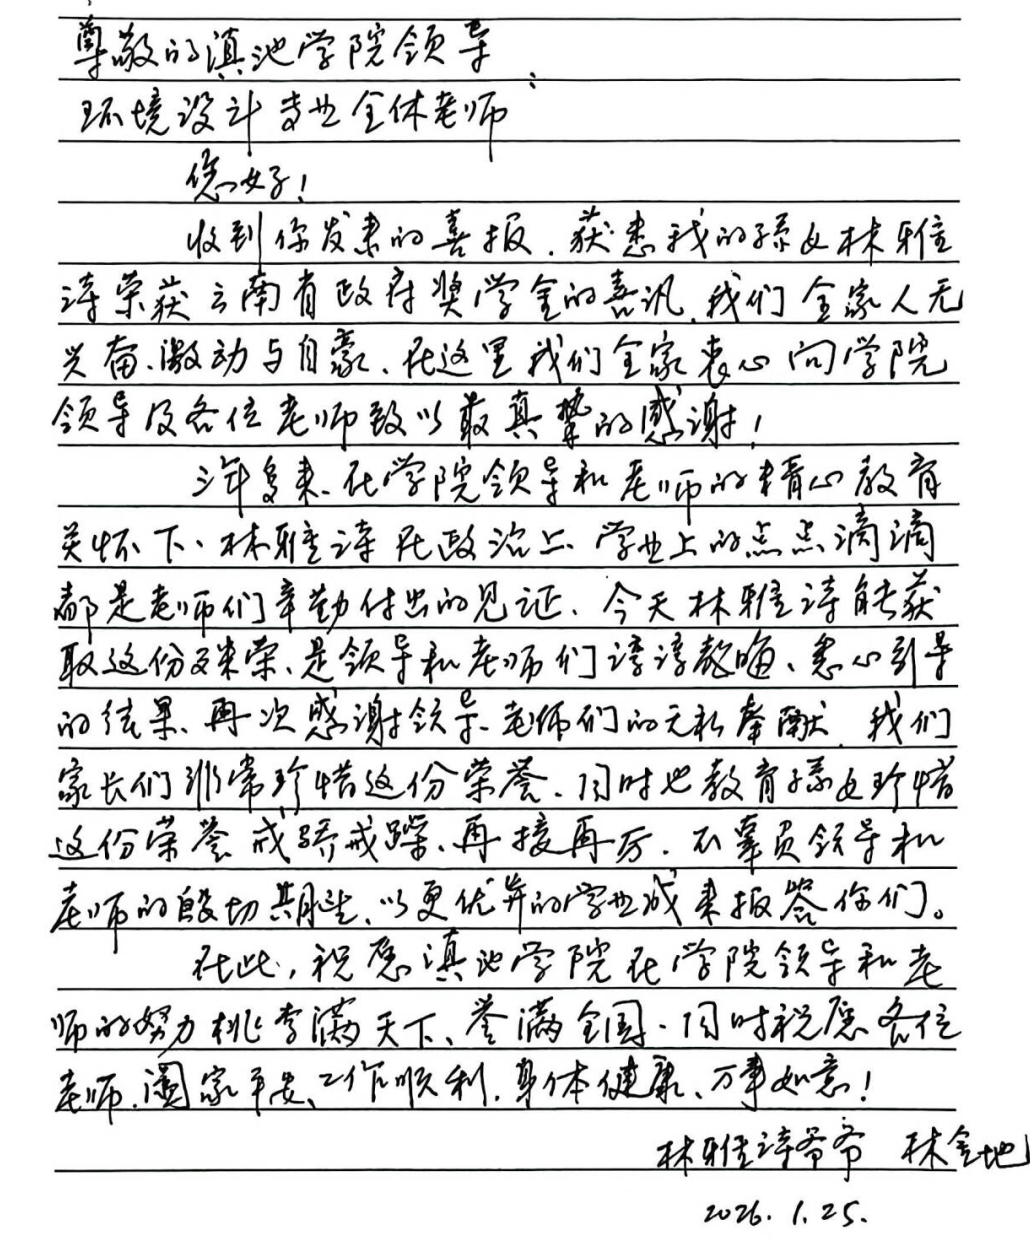 尊敬的滇池学院领导
环境设计专业全体老师：
您好！
收到你发来的喜报、获悉我的孙女林雅
诗荣获云南省政府奖学金的喜讯、我们全家人无
兴奋、激动与自豪、在这里我们全家衷心向学院
领导及各位老师致以最真挚的感谢！
三年多来、在学院领导和老师的精心教育
关怀下、林雅诗在政治上、学业上的点点滴滴
都是老师们辛勤付出的见证、今天林雅诗能获
取这份殊荣、是领导和老师们谆谆教诲、悉心引导
的结果、再次感谢领导、老师们的无私奉献、我们
家长们非常珍惜这份荣誉、同时也教育孙女珍惜
这份荣誉戒骄戒躁、再接再厉、不辜负领导和
老师的殷切期望、以更优异的学业成来报答你们。
在此，祝愿滇池学院在学院领导和老
师的努力桃李满天下、誉满全国、同时祝愿各位
老师、阖家平安、工作顺利、身体健康、万事如意！
林雅诗爷爷 林金地
2026.1.25.